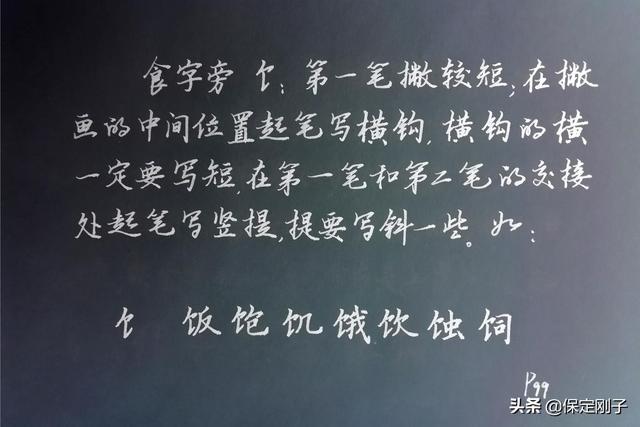 食字旁饣:第一笔撇较短,在撇
画的中间位置起笔写横钩,横钩的横
一定要写短,在第一笔和第二笔的交接
处起笔写竖提,提要写斜一些。如:
饣 饭饱饥饿饮蚀饲
P99
头条 @保定刚子